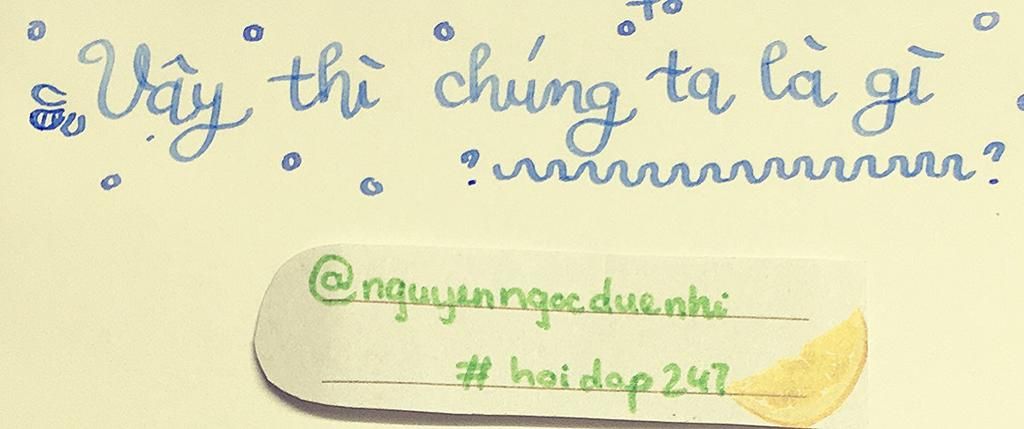 Vậy thì chúng ta là gì
? ?
@nguyenngocduenhi
# hoidap247